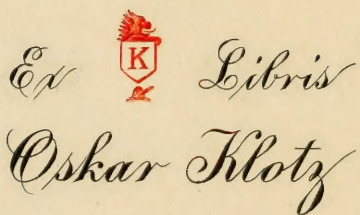 Ex K Libris
Oskar Klotz